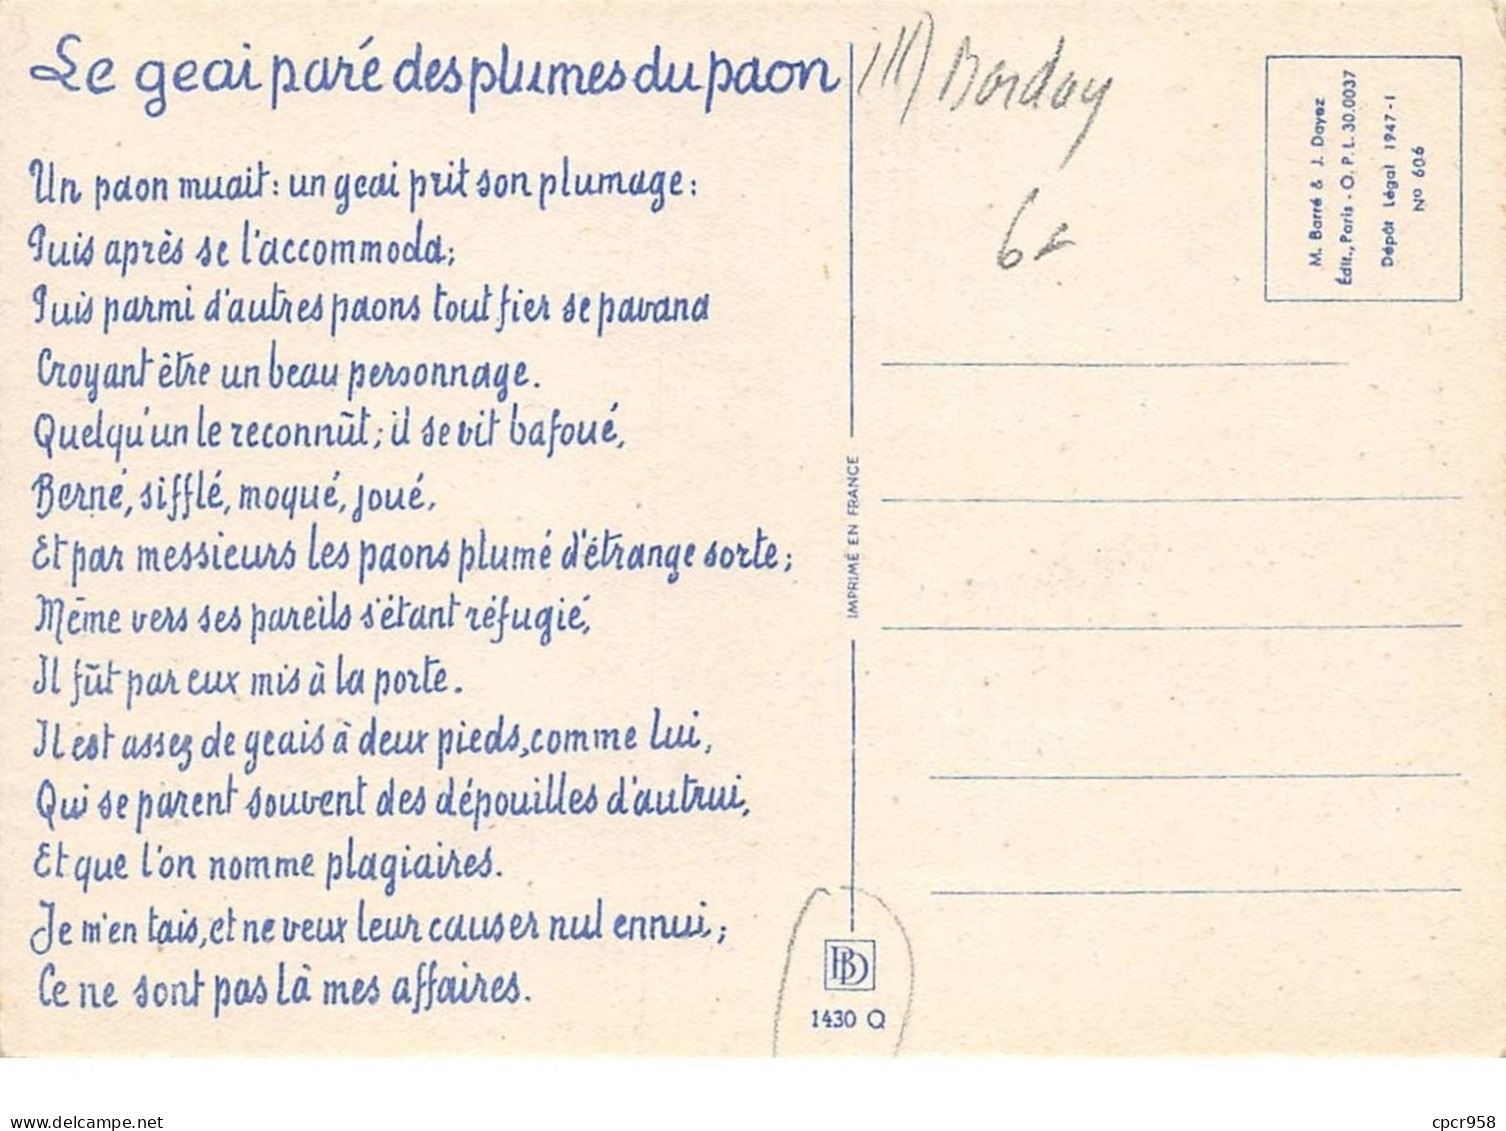 Le geai paré des plumes du paon
Un paon muait : un geai prit son plumage :
Puis après se l'accommoda;
Puis parmi d'autres paons tout fier se pavana
Croyant être un beau personnage.
Quelqu'un le reconnût; il se vit bafoué,
Berné, sifflé, moqué, joué,
Et par messieurs les paons plumé d'étrange sorte;
Même vers ses pareils s'étant réfugié,
Il fût par eux mis à la porte.
Il est assez de geais à deux pieds, comme lui,
Qui se parent souvent des dépouilles d'autrui,
Et que l'on nomme plagiaires.
Je m'en tais, et ne veux leur causer nul ennui;
Ce ne sont pas là mes affaires.
IMPRIMÉ EN FRANCE
BD
1430 Q
Ill) Barday
6
M. Barré & J. Dayez
Édit., Paris - O.P.L. 30.0037
Dépôt Légal 1947-I
N° 606
delcampe.net
cpcr958